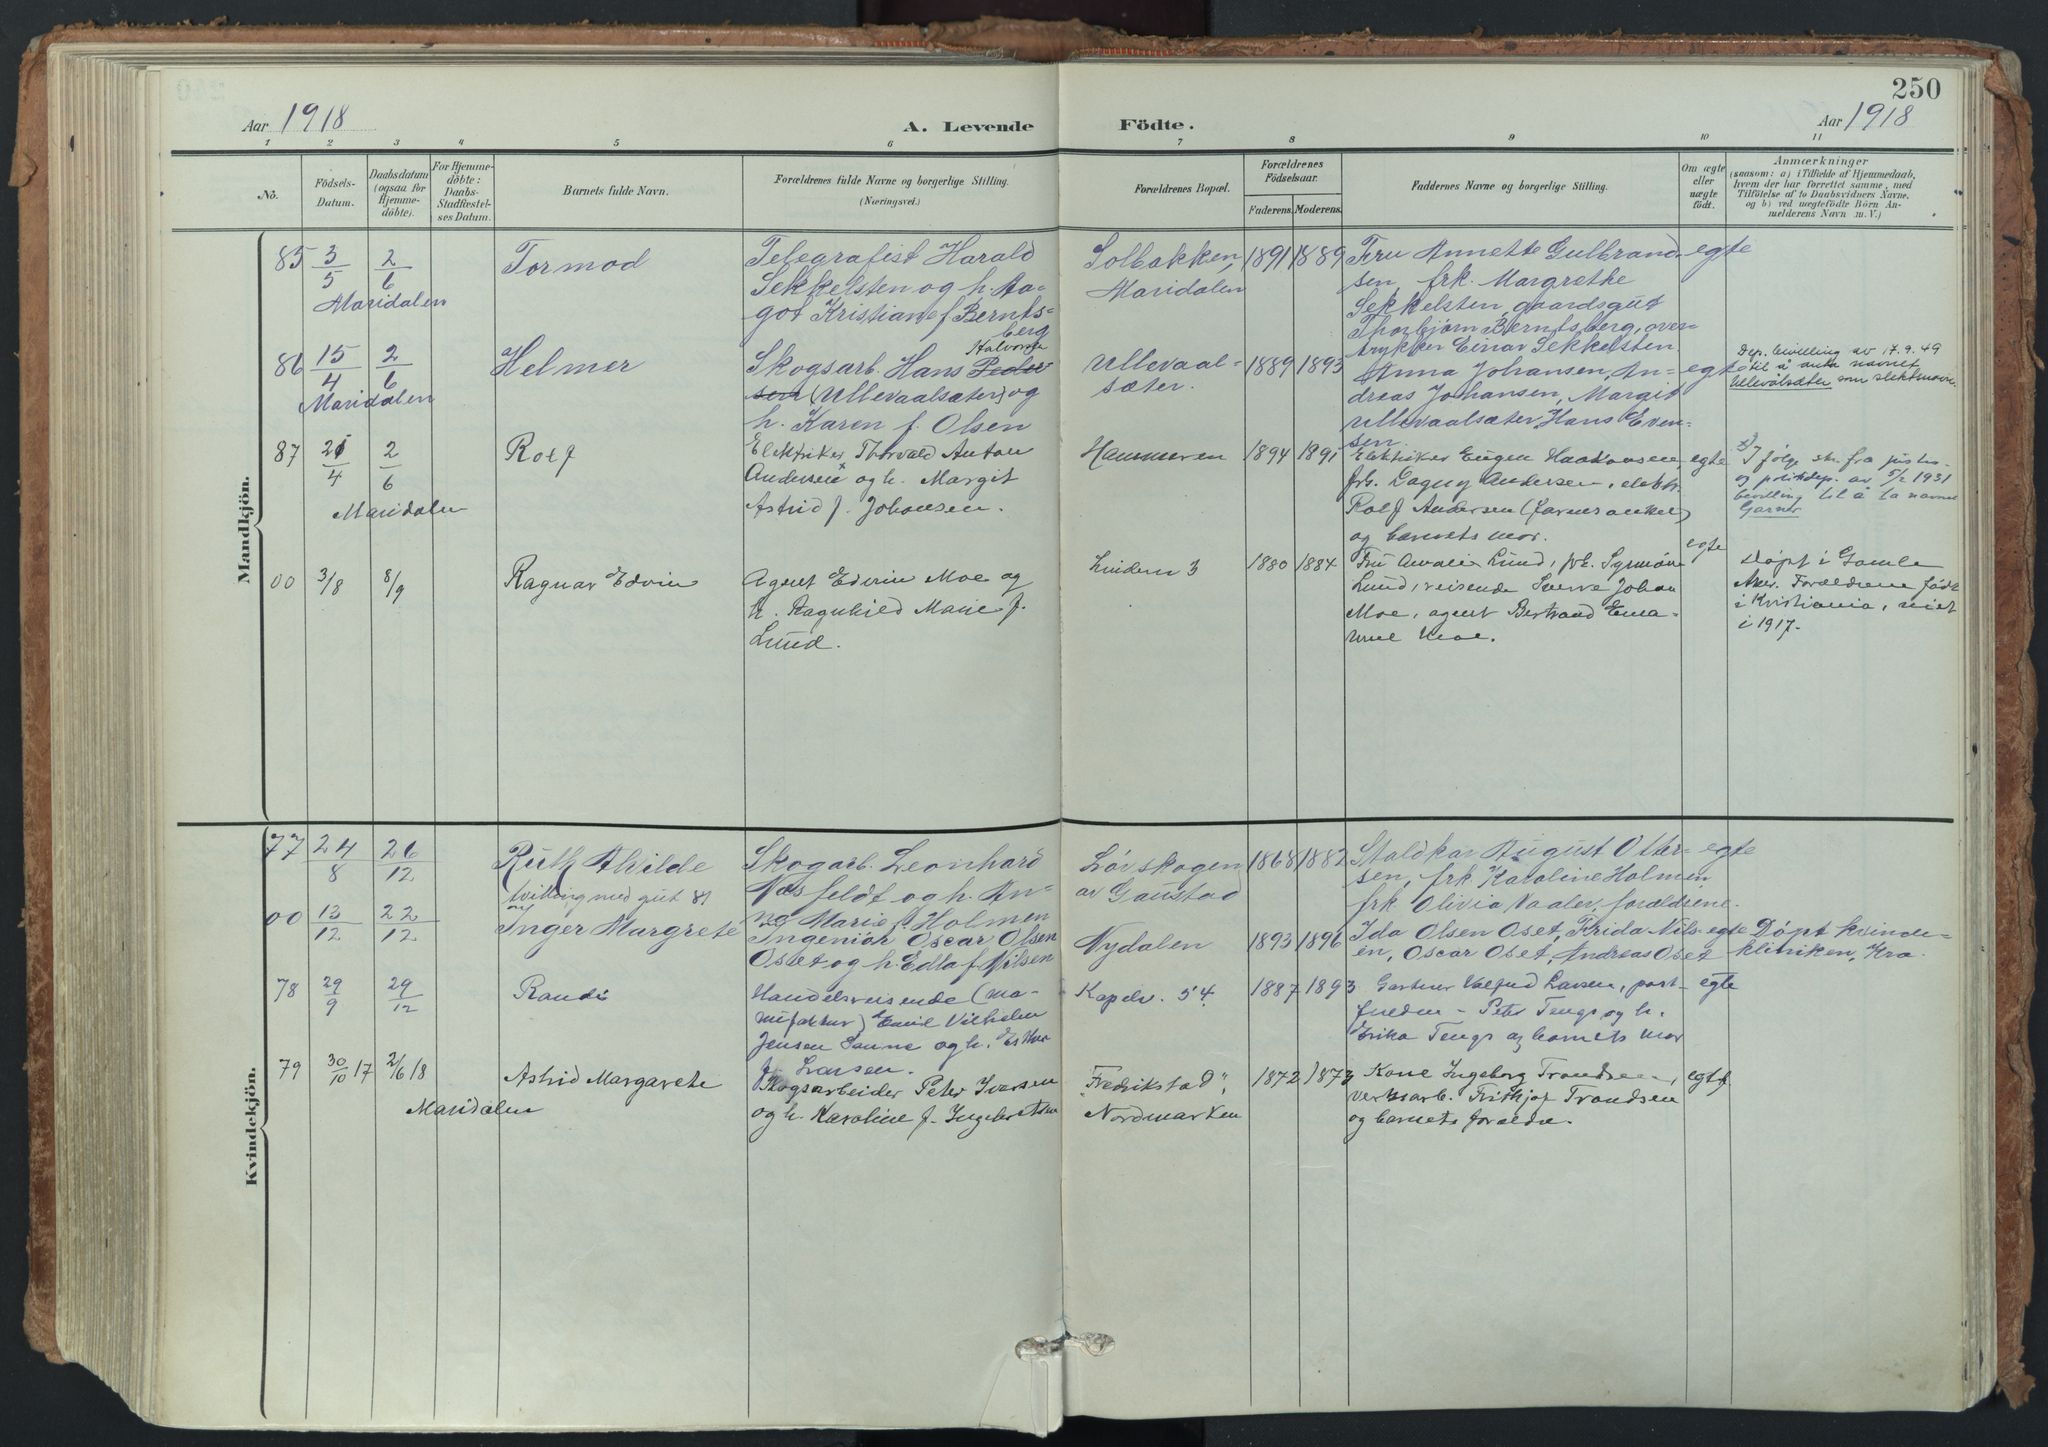 250
Aar 1918
A. Levende Födte.
Aar 1918
1 2 3 4 5 6 7 8 9 10 11
No.
Födsels-
Datum.
Daabsdatum
(ogsaa for
Hjemme-
döbte).
For Hjemme-
döbte:
Daabs-
Stadfæstel-
ses Datum.
Barnets fulde Navn.
Forældrenes fulde Navne og borgerlige Stilling.
(Næringsvei.)
Forældrenes Bopæl.
Forældrenes
Födselsaar.
Faderens. Moderens.
Faddernes Navne og borgerlige Stilling.
Om ægte
eller
uægte
födt.
Anmærkninger
(saasom: a) i Tilfælde af Hjemmedaab,
hvem der har forrettet samme, med
Tilföielse af to Daabsvidners Navne,
og b) ved uægtefödte Börn An-
melderens Navn m. V.)
Mandkjön.
85 3/5 2/6
Maridalen
Tormod
Telegrafist Harald
Sekkelsten og h. Aa-
got Kristiane f Bernts-
berg
Solbakken,
Maridalen
1891 1889
Fru Annette Gulbrand-
sen, frk. Margrethe
Sekkelsten, gaardsgut
Thorbjörn Berntsberg, over-
trykker Einar Sekkelsten
egte
86 15/4 2/6
Maridalen
Helmer
Halvorsen
Skogsarb. Hans Peder
sen (Ullevaalsæter) og
h. Karen f. Olsen
Ullevaal-
sæter.
1889 1893
Anna Johansen, An-
dreas Johansen, Margit
Ullevaalsæter, Hans Even-
sen.
egte
Dep. bevilling av 17.9.49
til å anta navnet
Ullevålsæter som slektsnavn
87 21/4 2/6
Maridalen
Rolf
Elektriker Thorvald Anton
Andersen x og h. Margit
Astrid f. Johansen.
Hammeren
1894 1891
Elektriker Eugen Haakonsen,
frk. Dagny Andersen, elektr.
Rolf Andersen (farens onkel)
og barnets mor.
egte
x) I følge skr. fra justis-
og politidep. av 5/2 1931
bevilling til å ta navnet
Garner
00 3/8 8/9
Ragnar Edvin
Agent Edvin Moe og
h. Ragnhild Marie f.
Lund.
Lindern 3
1880 1884
Fru Amalie Lund, frk. Synnöve
Lund, reisende Sverre Johan
Moe, agent Bertrand Ema-
nuel Moe.
egte
Døpt i Gamle
Aker. Forældrene födt
i Kristiania, viet
i 1917.
Kvindekjön.
77 24/8 26/12
Ruth Alvilde
tvilling med gut 81
Skogarb. Leonhard
Næsfeldt og h. An-
na Marie f. Holmen
Lövskogen
av Gaustad
1868 1882
Staldkar August Otter-
sen, frk Karoline Holmen,
frk. Olivia Vaaler, forældrene.
egte
00 13/12 22/12
Inger Margrete
Ingeniör Oscar Olsen
Oset og h. Edla f Nilsen
Nydalen
1893 1896
Ida Olsen Oset, Frida Nils-
en, Oscar Oset, Andreas Oset
egte
Döpt kvinde-
kliniken, Kra.
78 29/9 29/12
Randi
Handelsreisende (ma-
nufaktur) Emil Vilhelm
Jensen Sanne og h. Esther
f. Larsen.
Kapelv. 54.
1887 1893
Gartner Valfrid Larsen, post-
fuldm. Peter Tengs og h.
Erika Tengs og barnets mor
egte
79 30/10 17 2/6 18
Maridalen
Astrid Margarete
Skogsarbeider Peter Iversen
og h. Karoline f. Ingebretsen
"Fredrikstad",
Nordmarken
1872 1873
Kone Ingeborg Trondsen,
verksarb. Frithjof Trondsen
og barnets forældre.
egte